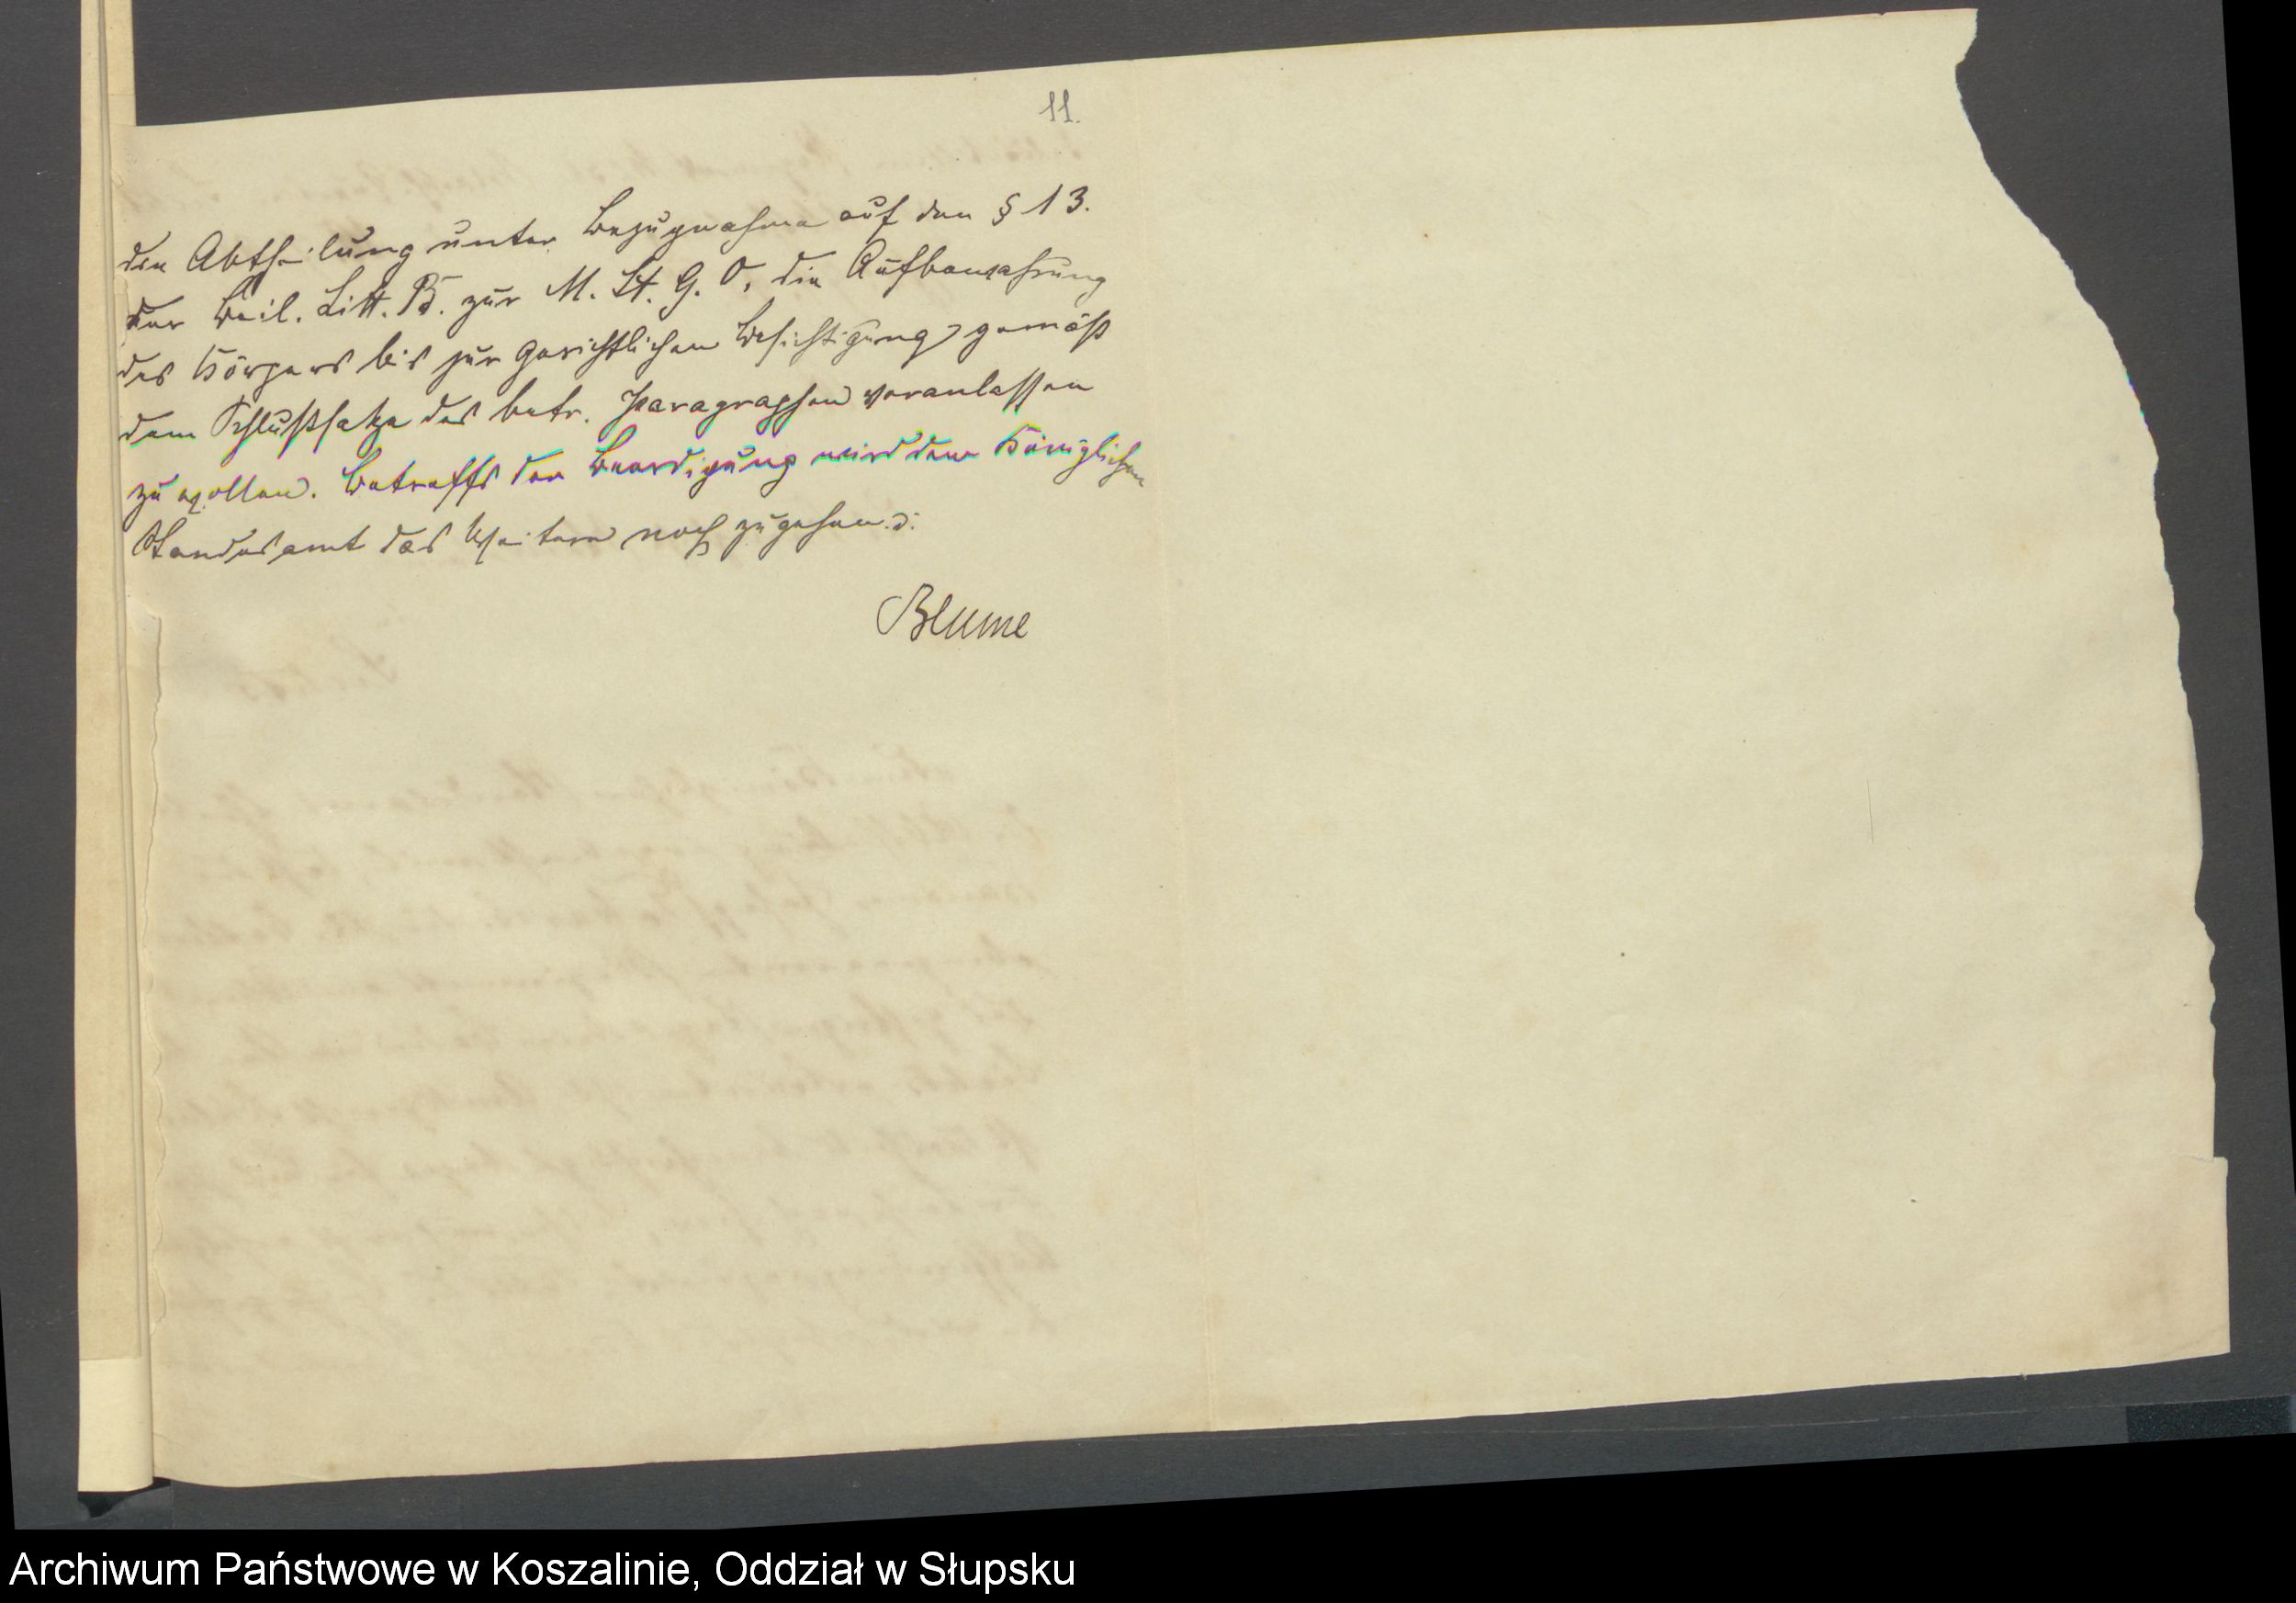 11.
die Abtheilung unter Bezugnahme auf den § 13.
der Beil. Litt. B. zur M. St. G. O, die Aufbewahrung
des Körpers bis zur gerichtlichen Besichtigung gemäß
dem Schlußsatze des betr. Paragraphen veranlassen
zu wollen. Betreffs der Beerdigung wird dem Königlichen
Standesamt das Weitere noch zugehen.
Blume
Archiwum Państwowe w Koszalinie, Oddział w Słupsku